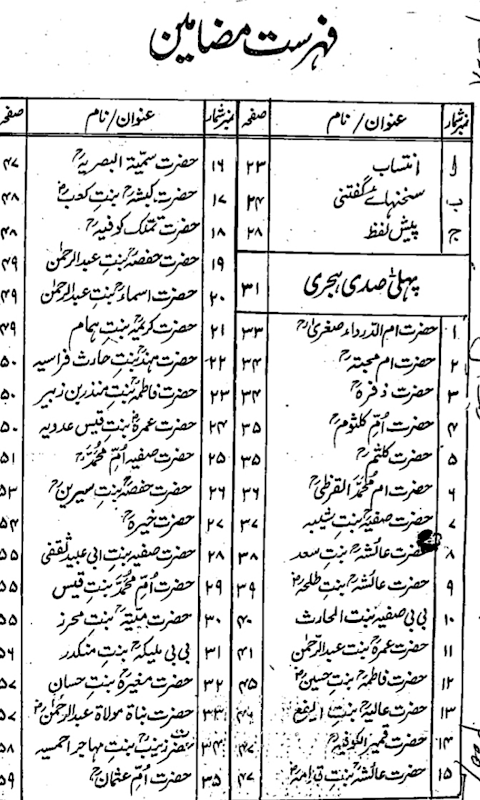 فہرست مضامین
نمبر شمار عنوان/نام صفحہ
ا انتساب ۲۳
ب سخنہائے گفتنی ۲۴
ج پیش لفظ ۲۸
پہلی صدی ہجری ۳۱
۱ حضرت ام الدرداء صغریٰؒ ۳۳
۲ حضرت ام محبتہؒ ۳۴
۳ حضرت ذفرہؒ ۳۴
۴ حضرت اُمِّ کلثومؒ ۳۵
۵ حضرت کلثمؒ ۳۵
۶ حضرت ام محمد القرظیؒ ۳۶
۷ حضرت صفیہؒ بنتِ شیبہ ۳۷
۸ حضرت عائشہؒ بنتِ سعد ۳۸
۹ حضرت عائشہؒ بنتِ طلحہؓ ۳۹
۱۰ بی بی صفیہؒ بنت الحارث ۴۰
۱۱ حضرت عمرہؒ بنت عبدالرحمٰن ۴۱
۱۲ حضرت فاطمہؒ بنتِ حسینؓ ۴۵
۱۳ حضرت عالیہؒ بنت ۴۶
۱۴ حضرت قمیر الکوفیہؒ ۴۷
۱۵ حضرت عائشہؒ بنتِ قدامہؓ ۴۷
نمبر شمار عنوان/نام صفحہ
۱۶ حضرت سمیّۃ البصریہؒ ۴۷
۱۷ حضرت کبشہؒ بنت کعبؓ ۴۸
۱۸ حضرت تملک کوفیہؒ ۴۸
۱۹ حضرت حفصہؒ بنتِ عبدالرحمٰن ۴۹
۲۰ حضرت اسماءؒ بنت عبدالرحمٰن ۴۹
۲۱ حضرت کریمہؒ بنتِ ہمام ۴۹
۲۲ حضرت ہندؒ بنتِ حارث فراسیہ ۵۰
۲۳ حضرت فاطمہؒ بنتِ منذر بن زبیر ۵۰
۲۴ حضرت عمرہؒ بنت قیس عدویہ ۵۰
۲۵ حضرت صفیہ اُمِّ محمدؒ ۵۱
۲۶ حضرت حفصہؒ بنتِ سیرینؒ ۵۳
۲۷ حضرت خیرہؒ ۵۴
۲۸ حضرت صفیہ بنتِ ابی عبید ثقفی ۵۵
۲۹ حضرت اُمِّ محمدؒ بنتِ قیس ۵۵
۳۰ حضرت منیّہؒ بنتِ محرز ۵۵
۳۱ بی بی ملیکہؒ بنتِ منکدر ۵۶
۳۲ حضرت مغیرہؒ بنتِ حسان ۵۷
۳۳ حضرت بنانۃ مولاۃ عبدالرحمٰنؓ ۵۷
۳۴ حضرت زینبؒ بنتِ مہاجر احمسیہ ۵۸
۳۵ حضرت اُمِّ عثمانؒ ۵۹